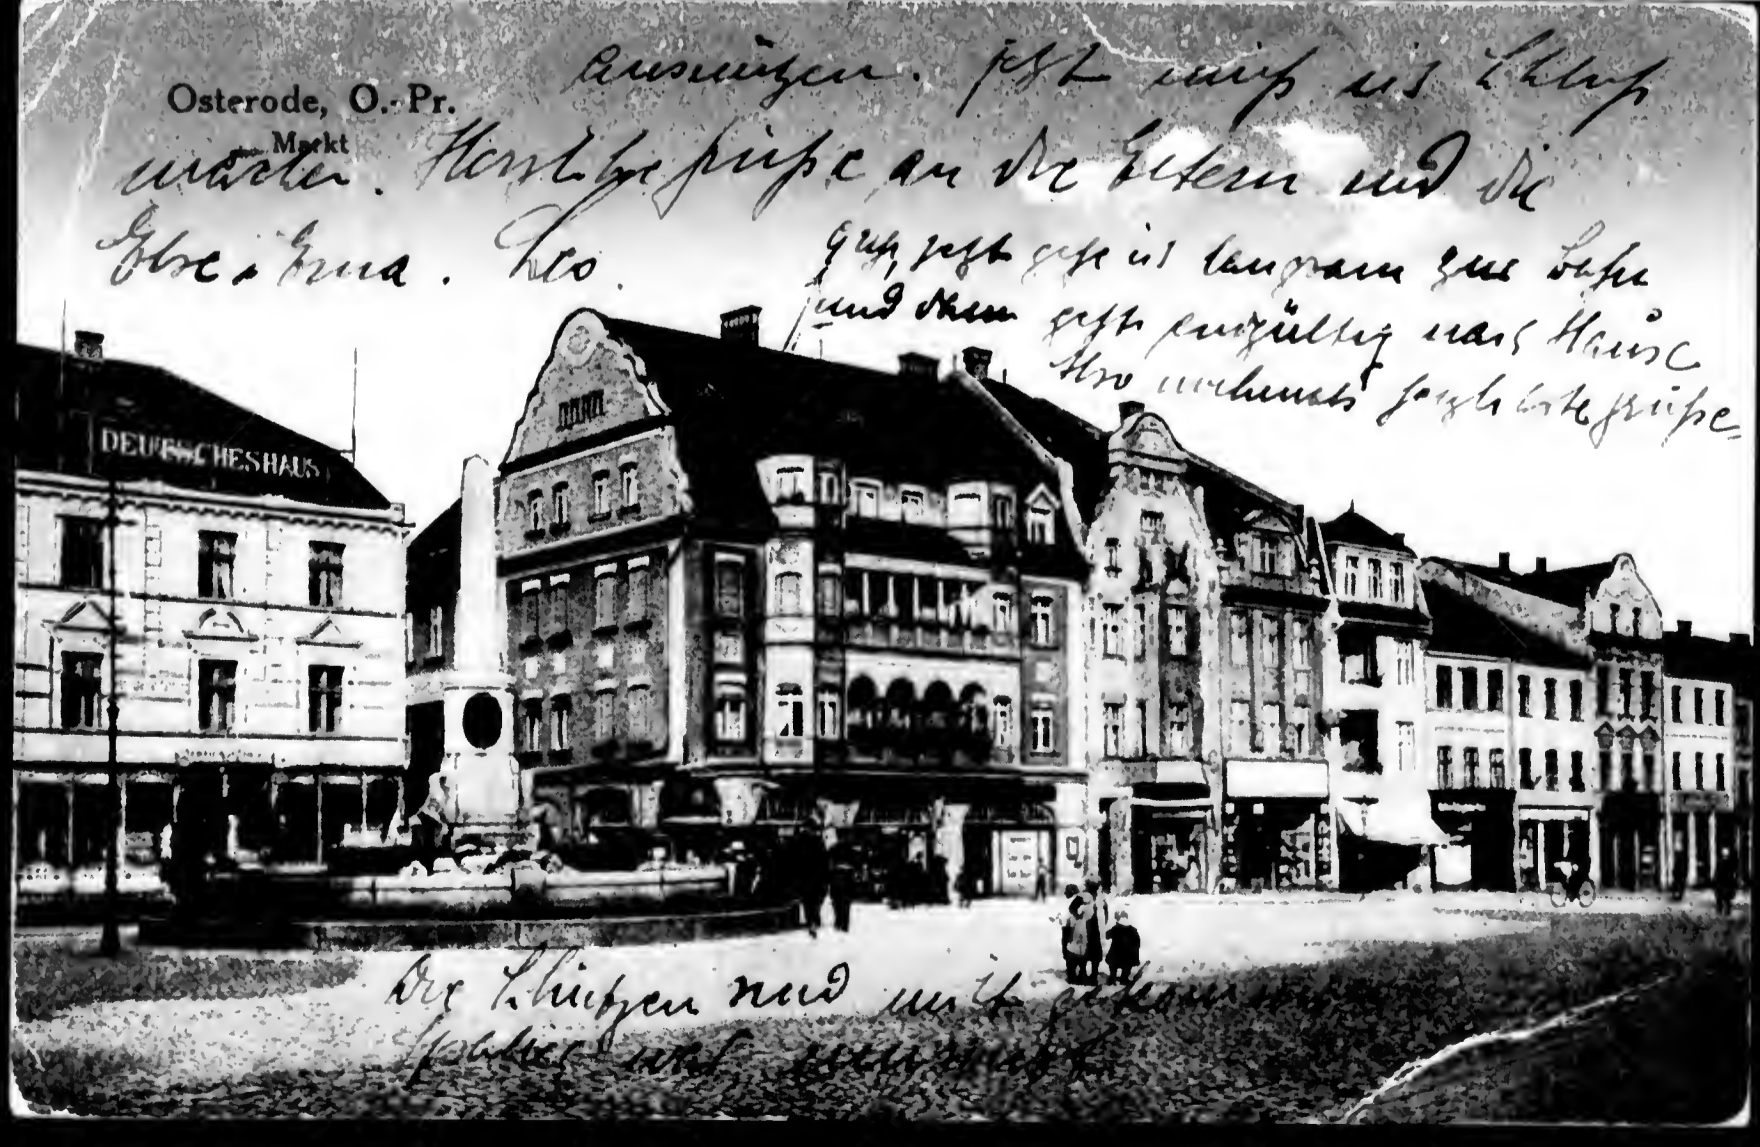 Osterode, O.-Pr.
Markt
ausnützen. Jetzt muß ich Schluß
machen. Herzliche Grüße an die Eltern und die
Else u Erna. Leo.
jetzt gehe ich langsam zur Bahn
und dann gehts endgültig nach Hause
Also nochmals herzlichste Grüße
DEUTSCHESHAUS
Die Schützen sind mit gekommen